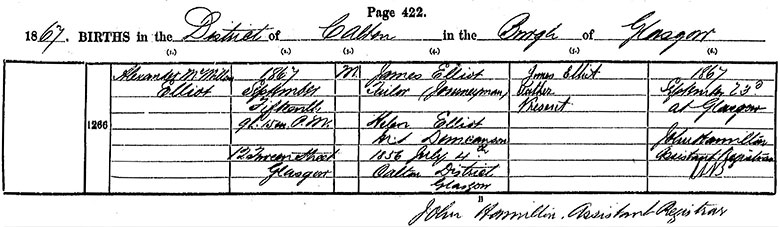 Page 422.
1867. BIRTHS in the District of Calton in the Burgh of Glasgow
(1.) (2.) (3.) (4.) (5.) (6.)
1266
Alexander McMillan
Elliot
1867
September
Fifteenth
9h. 15m. P.M.
12 Green Street
Glasgow
M.
James Elliot
Tailor (Journeyman)
Helen Elliot
M.S. Duncanson
1856 July 4th
Calton District
Glasgow
James Elliot
Father
Present
1867
September 23d
at Glasgow
John Hamilton
Assistant Registrar
John Hamilton. Assistant Registrar